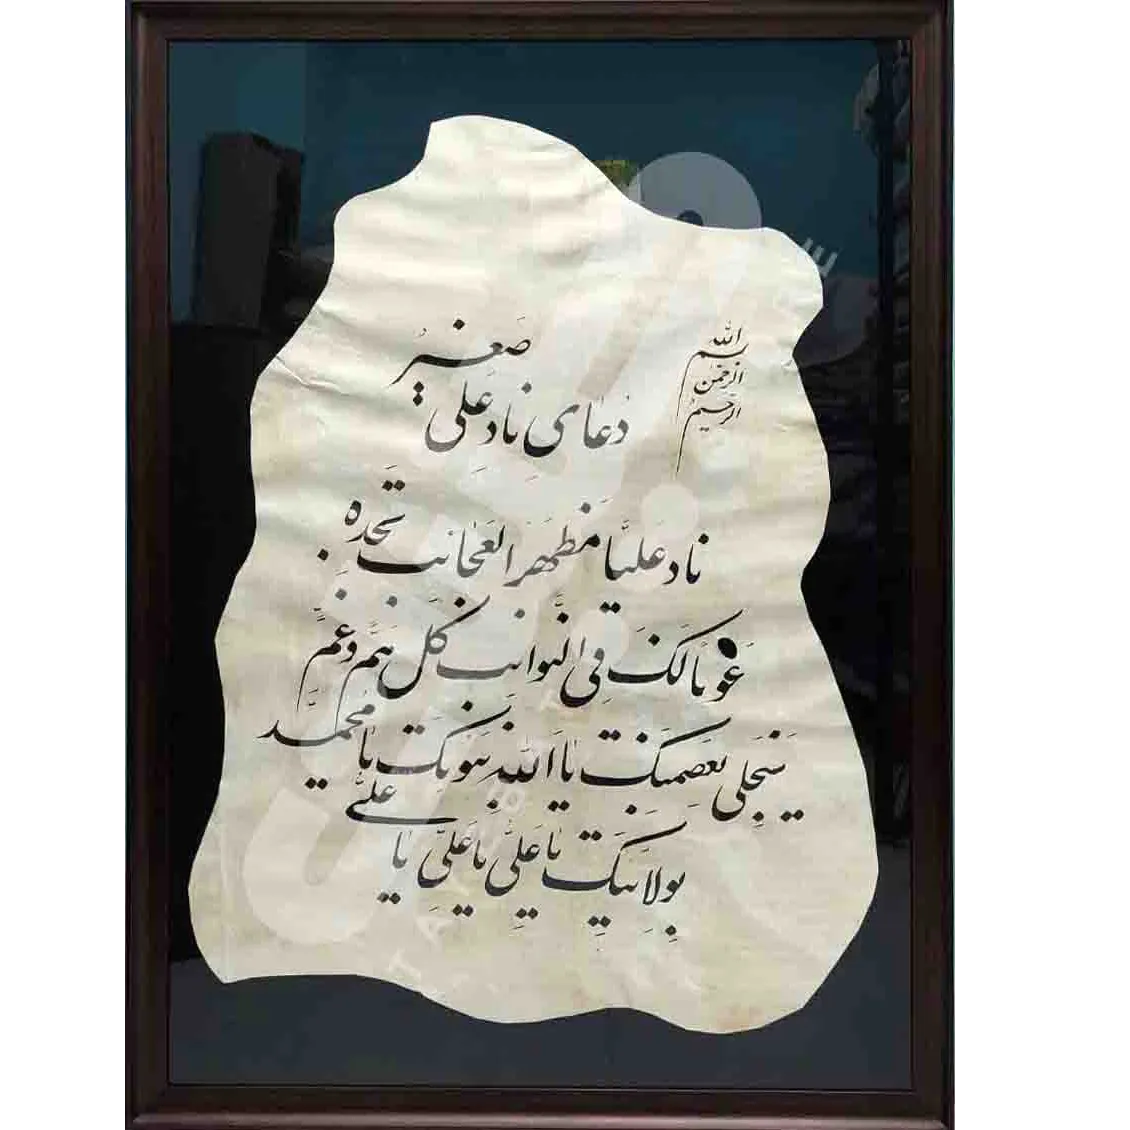 بسم الله
الرحمن
الرحیم
دعای ناد علی صغیر
ناد علیا مظهر العجائب تجده
عونا لک فی النوائب کل هم و غم
سینجلی بعصمتک یا الله بنبوتک یا محمد
بولایتک یا علی یا علی یا علی